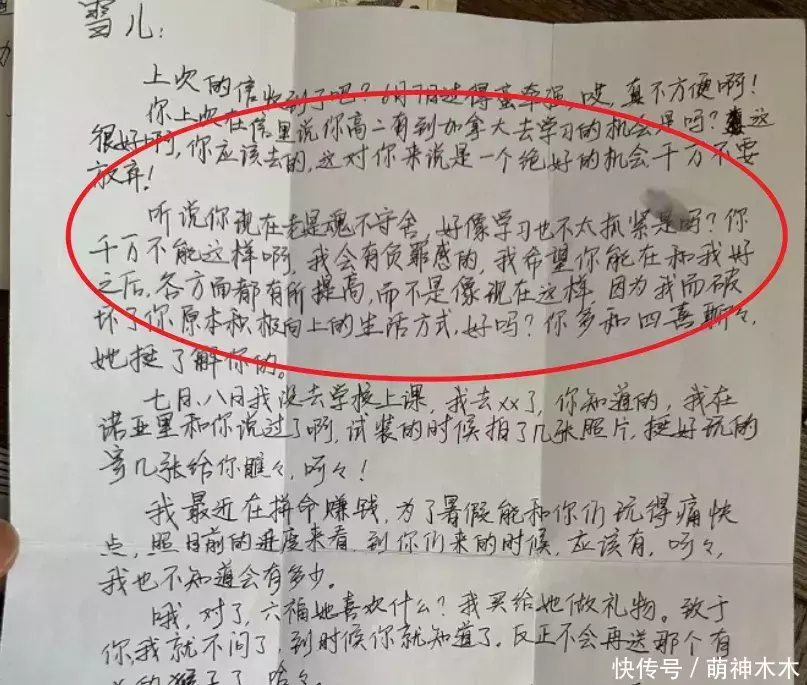 雪儿：
上次的信收到了吧？6月7日过得蛮牵强，哎，真不方便啊！
你上次在信里说你高二有到加拿大去学习的机会是吗？这
很好啊，你应该去的，这对你来说是一个绝好的机会千万不要
放弃！
听说你现在老是魂不守舍，好像学习也不太抓紧是吗？你
千万不能这样啊，我会有负罪感的，我希望你能在和我好
之后，各方面都有所提高，而不是像现在这样，因为我而破
坏了你原本积极向上的生活方式，好吗？你多和四喜聊々，
她挺了解你的。
七日、八日我没去学校上课，我去xx了，你知道的，我在
诺亚里和你说过了啊，试装的时候拍了几张照片，挺好玩的
寄几张给你瞧々，呵々！
我最近在拼命赚钱，为了暑假能和你们玩得痛快
点，照目前的进度来看，到你们来的时候，应该有，呵々，
我也不知道会有多少。
哦，对了，六福她喜欢什么？我买给她做礼物。致于
你，我就不问了，到时候你就知道了。反正不会再送那个有
的猴子了，哈々。
快传号／萌神木木